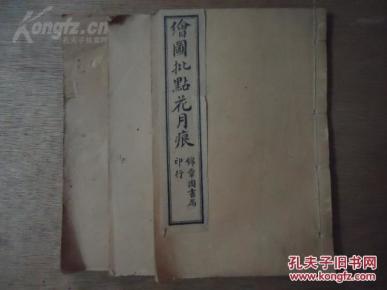 Kongfz.com
繪圖批點花月痕
錦章圖書局
印行
孔夫子旧书网
Kongfz.com